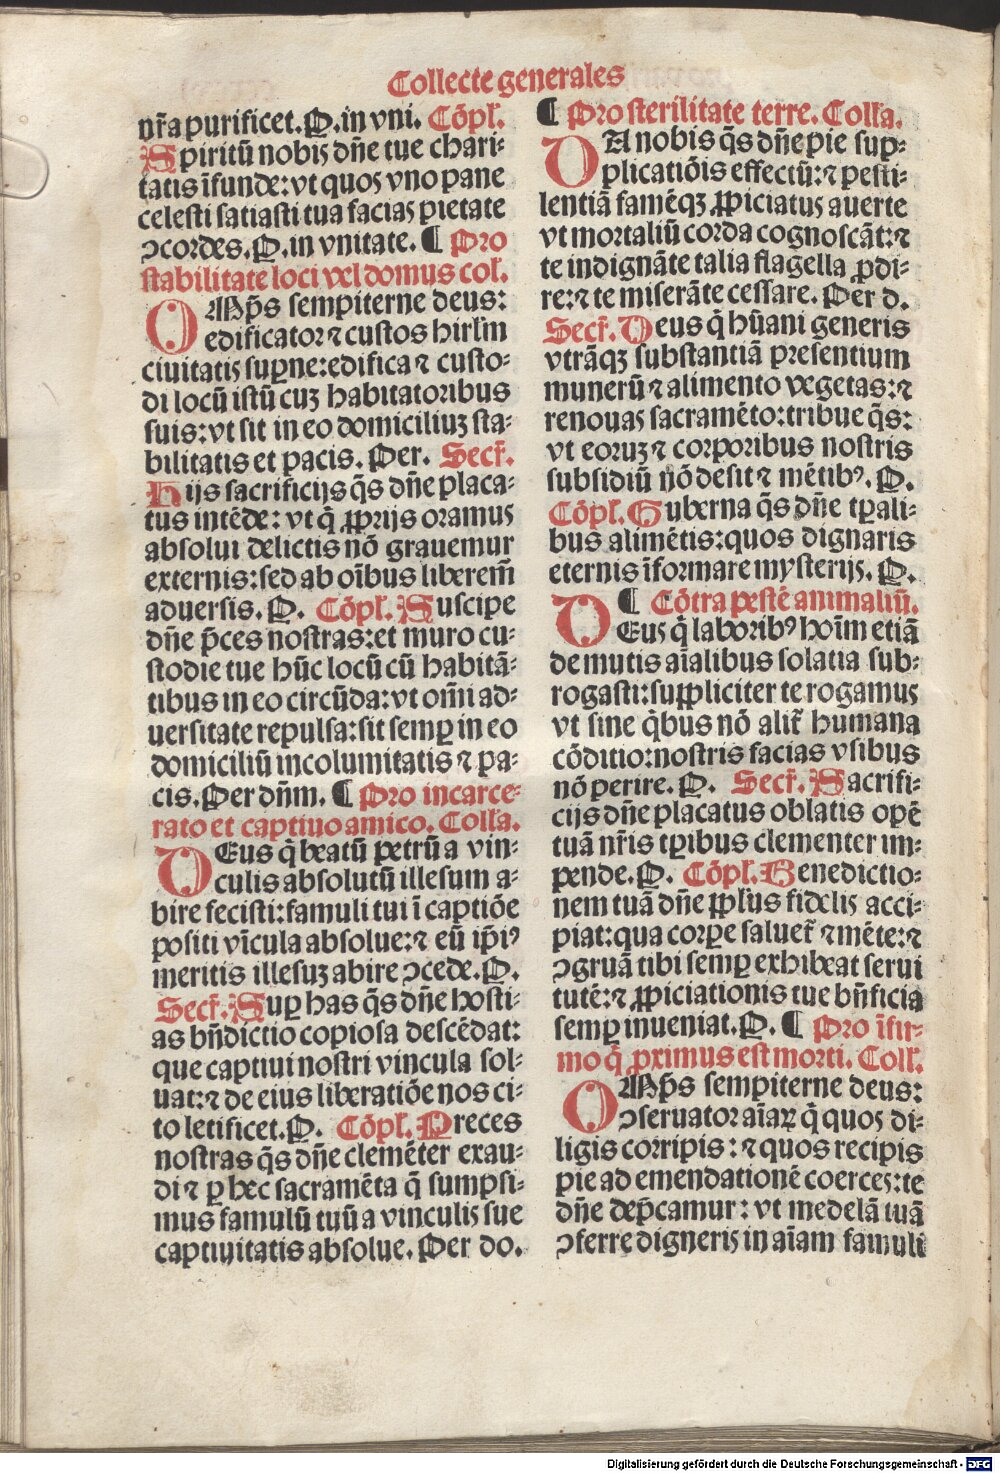 Collecte generales
nr̄a purificet. P. in vni. Cōpl.
Spiritū nobis dn̄e tue chari-
tatis īfunde: vt quos vno pane
celesti satiasti tua facias pietate
ↄcordes. P. in vnitate. ¶ Pro
stabilitate loci vel domus col.
OMp̄s sempiterne deus:
edificator ⁊ custos hirlm̄
ciuitatis suꝑne: edifica ⁊ custo-
di locū istū cuꝫ habitatoribus
suis: vt sit in eo domiciliuꝫ sta-
bilitatis et pacis. Per. Secr̄.
Hijs sacrificijs q̄s dn̄e placa-
tus intēde: vt q̄ ꝓprijs oramus
absolui delictis nō grauemur
externis: sed ab oībus liberem̄
aduersis. P. Cōpl. Suscipe
dn̄e p̄ces nostras: et muro cu-
stodie tue hūc locū cū habitā-
tibus in eo circūda: vt om̄i ad-
uersitate repulsa: sit semꝑ in eo
domiciliū incolumitatis ⁊ pa-
cis. Per dn̄m. ¶ Pro incarce-
rato et captiuo amico. Coll'a.
DEus q̄ beatū petrū a vin-
culis absolutū illesum a-
bire fecisti: famuli tui ī captiōe
positi vīcula absolue: ⁊ eū ip̄iꝰ
meritis illesuꝫ abire ↄcede. P.
Secr̄. Suꝑ has q̄s dn̄e hosti-
as bn̄dictio copiosa descēdat:
que captiui nostri vincula sol-
uat: ⁊ de eius liberatiōe nos ci-
to letificet. P. Cōpl. Preces
nostras q̄s dn̄e clemēter exau-
di ⁊ ꝑ hec sacramēta q̄ sumpsi-
mus famulū tuū a vinculis sue
captiuitatis absolue. Per do.
¶ Pro sterilitate terre. Coll'a.
DA nobis q̄s dn̄e pie sup-
plicatiōis effectū: ⁊ pesti-
lentiā famēqꝫ ꝓpiciatus auerte
vt mortaliū corda cognoscāt: ⁊
te indignāte talia flagella ꝓdi-
re: ⁊ te miserāte cessare. Per d.
Secr̄. Deus q̄ hūani generis
vtrāqꝫ substantiā presentium
munerū ⁊ alimento vegetas: ⁊
renouas sacramēto: tribue q̄s:
vt eoruꝫ ⁊ corporibus nostris
subsidiū nō desit ⁊ mētibꝰ. P.
Cōpl. Guberna q̄s dn̄e tꝑali-
bus alimētis: quos dignaris
eternis īformare mysterijs. P.
¶ Cōtra pestē animaliū.
DEus q̄ laboribꝰ hoīm etiā
de mutis aīalibus solatia sub-
rogasti: suppliciter te rogamus
vt sine q̄bus nō alit̄ humana
cōditio: nostris facias vsibus
nō perire. P. Secr̄. Sacrifi-
cijs dn̄e placatus oblatis opē
tuā nr̄is tꝑibus clementer im-
pende. P. Cōpl. Benedictio-
nem tuā dn̄e ppl's fidelis acci-
piat: qua corꝑe saluet̄ ⁊ mēte: ⁊
ↄgruā tibi semꝑ exhibeat serui
tutē: ⁊ ꝓpiciationis tue bn̄ficia
semꝑ inueniat. P. ¶ Pro īfir-
mo q̄ ꝓximus est morti. Coll'.
OMp̄s sempiterne deus:
ↄseruator aīaꝝ q̄ quos di-
ligis corripis: ⁊ quos recipis
pie ad emendationē coerces: te
dn̄e dep̄camur: vt medelā tuā
ↄferre digneris in aīam famuli
Digitalisierung gefördert durch die Deutsche Forschungsgemeinschaft - DFG